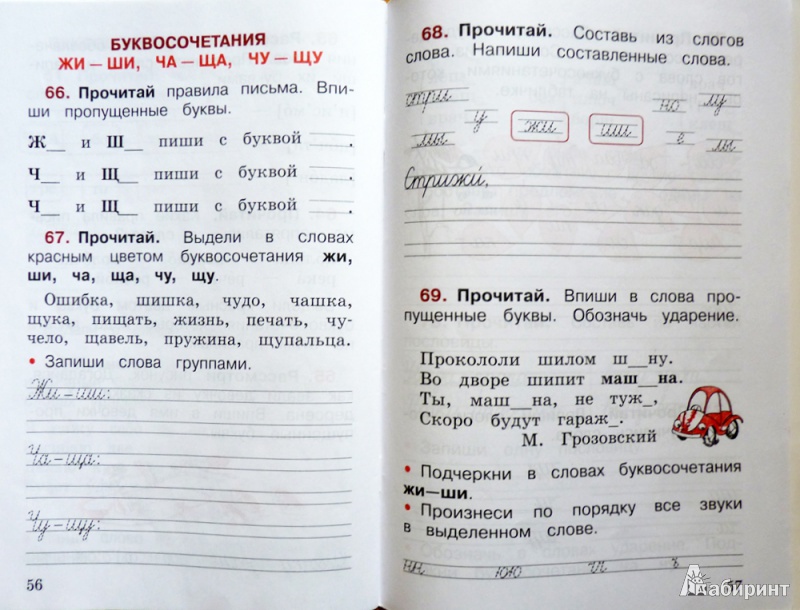 БУКВОСОЧЕТАНИЯ
ЖИ – ШИ, ЧА – ЩА, ЧУ – ЩУ
66. Прочитай правила письма. Впи-
ши пропущенные буквы.
Ж__ и Ш__ пиши с буквой ___.
Ч__ и Щ__ пиши с буквой ___.
Ч__ и Щ__ пиши с буквой ___.
67. Прочитай. Выдели в словах
красным цветом буквосочетания жи,
ши, ча, ща, чу, щу.
Ошибка, шишка, чудо, чашка,
щука, пищать, жизнь, печать, чу-
чело, щавель, пружина, щупальца.
• Запиши слова группами.
Жи – ши:
Ча – ща:
Чу – щу:
56
68. Прочитай. Составь из слогов
слова. Напиши составленные слова.
стри но лу
мы у жи ши е лы
Стрижи́,
69. Прочитай. Впиши в слова про-
пущенные буквы. Обозначь ударение.
Прокололи шилом ш__ну.
Во дворе шипит маш__на.
Ты, маш__на, не туж_,
Скоро будут гараж_.
М. Грозовский
• Подчеркни в словах буквосочетания
жи—ши.
• Произнеси по порядку все звуки
в выделенном слове.
57
Лабиринт